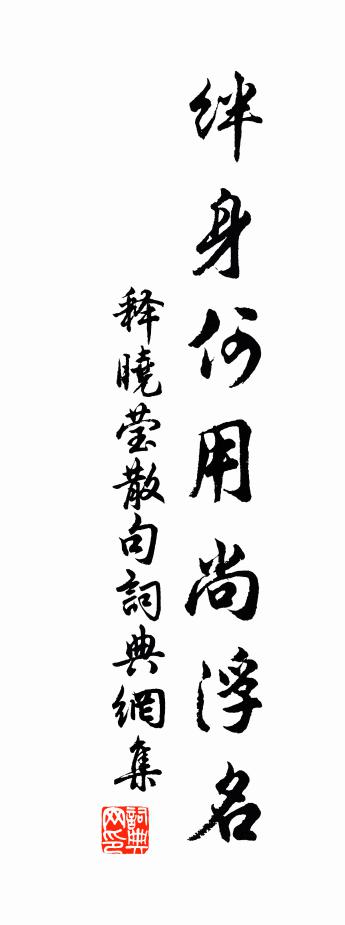 绊身何用尚浮名
释曉莹散句詞典網集
詞典网印